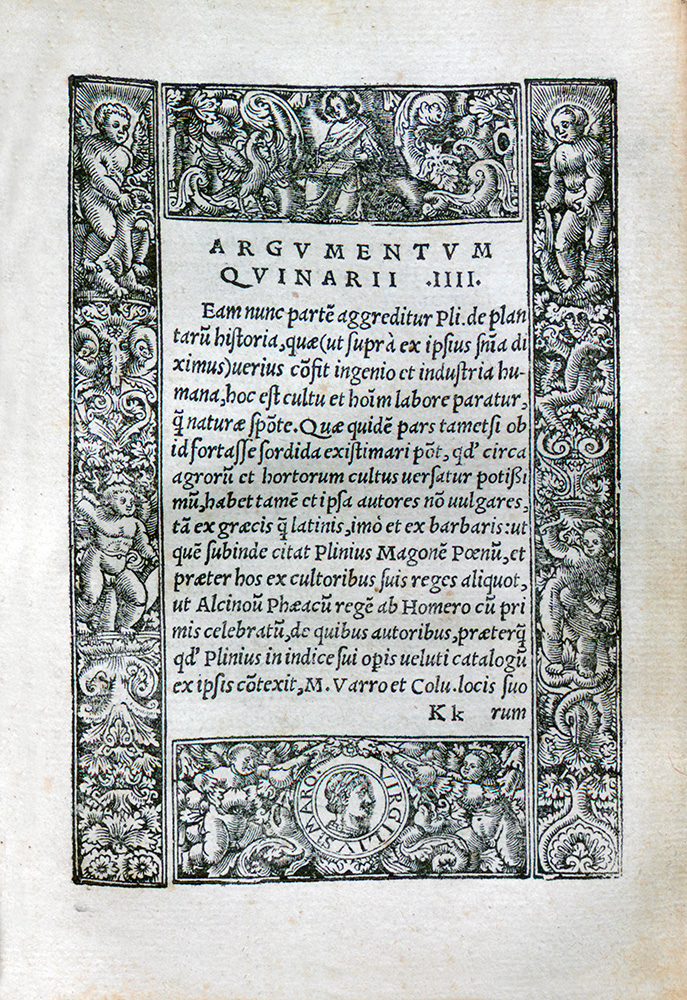 ARGVMENTVM
QVINARII .IIII.
Eam nunc partē aggreditur Pli. de plan
tarū historia, quæ (ut suprà ex ipsius sn̄ia di
ximus) uerius cōstit ingenio et industria hu-
mana, hoc est cultu et hoīm labore paratur,
q̄ naturæ spōte. Quæ quidē pars tametsi ob
id fortasse sordida existimari pōt, qd' circa
agrorū et hortorum cultus uersatur potißi
mū, habet tamē et ipsa autores nō uulgares,
tā ex græcis q̄ latinis, imò et ex barbaris: ut
quē subinde citat Plinius Magonē Poenū, et
præter hos ex cultoribus suis reges aliquot,
ut Alcinoū Phæacū regē ab Homero cū pri
mis celebratū, de quibus autoribus, præterq̄
qd' Plinius in indice sui opis ueluti catalogū
ex ipsis cōtexit, M. Varro et Colu. locis suo
Kk rum
VIRGILIVS MARO